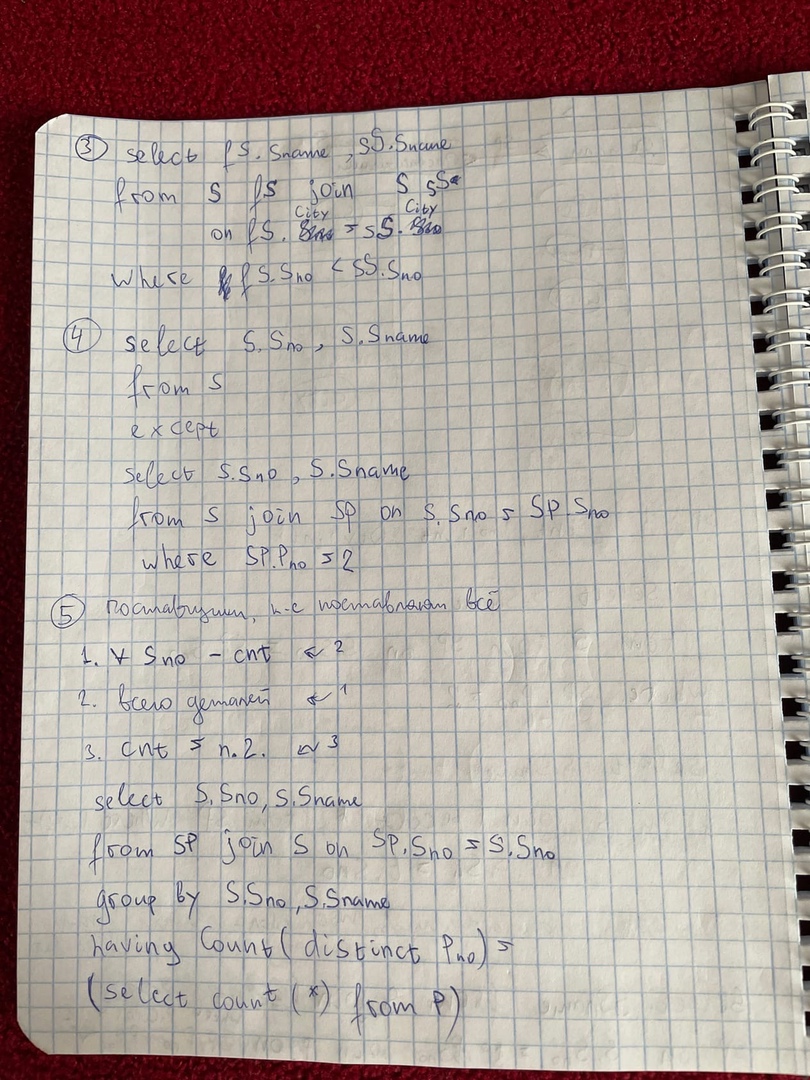 ③ select fS.Sname, sS.Sname
from S fS join S sS
on fS.City = sS.City
where fS.Sno < sS.Sno
④ select S.Sno, S.Sname
from S
except
select S.Sno, S.Sname
from S join SP on S.Sno = SP.Sno
where SP.Pno = 2
⑤ поставщики, к-е поставляют всё
1. ∀ Sno - cnt ← 2
2. всего деталей ← 1
3. cnt = п.2. ← 3
select S.Sno, S.Sname
from SP join S on SP.Sno = S.Sno
group by S.Sno, S.Sname
having Count(distinct Pno) =
(select count(*) from P)